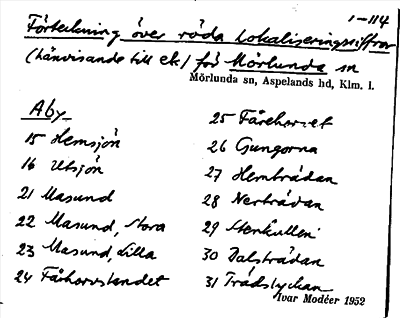 1-114
Förteckning över röda Lokaliseringssiffror
(hänvisande till ek.) för Mörlunda sn
Mörlunda sn, Aspelands hd, Klm. l.
Åby
15 Hemsjön
16 Utsjön
21 Masund
22 Masund, Stora
23 Masund, Lilla
24 Fårhorvslandet
25
26 Gungorna
27 Hemträdan
28 Nerträdan
29 Stenkullen
30 Dalsträdan
31 Trädstyckan
Ivar Modéer 1952